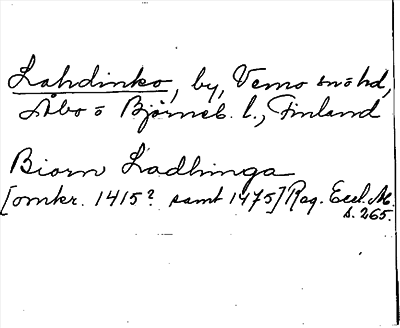 Lahdinko, by, Vemo snöhd,
Åbo ö Björneb. l., Finland
Biorn Ladhinga
[omkr. 1415? samt 1475] Reg. Eccl. M.
s. 265.